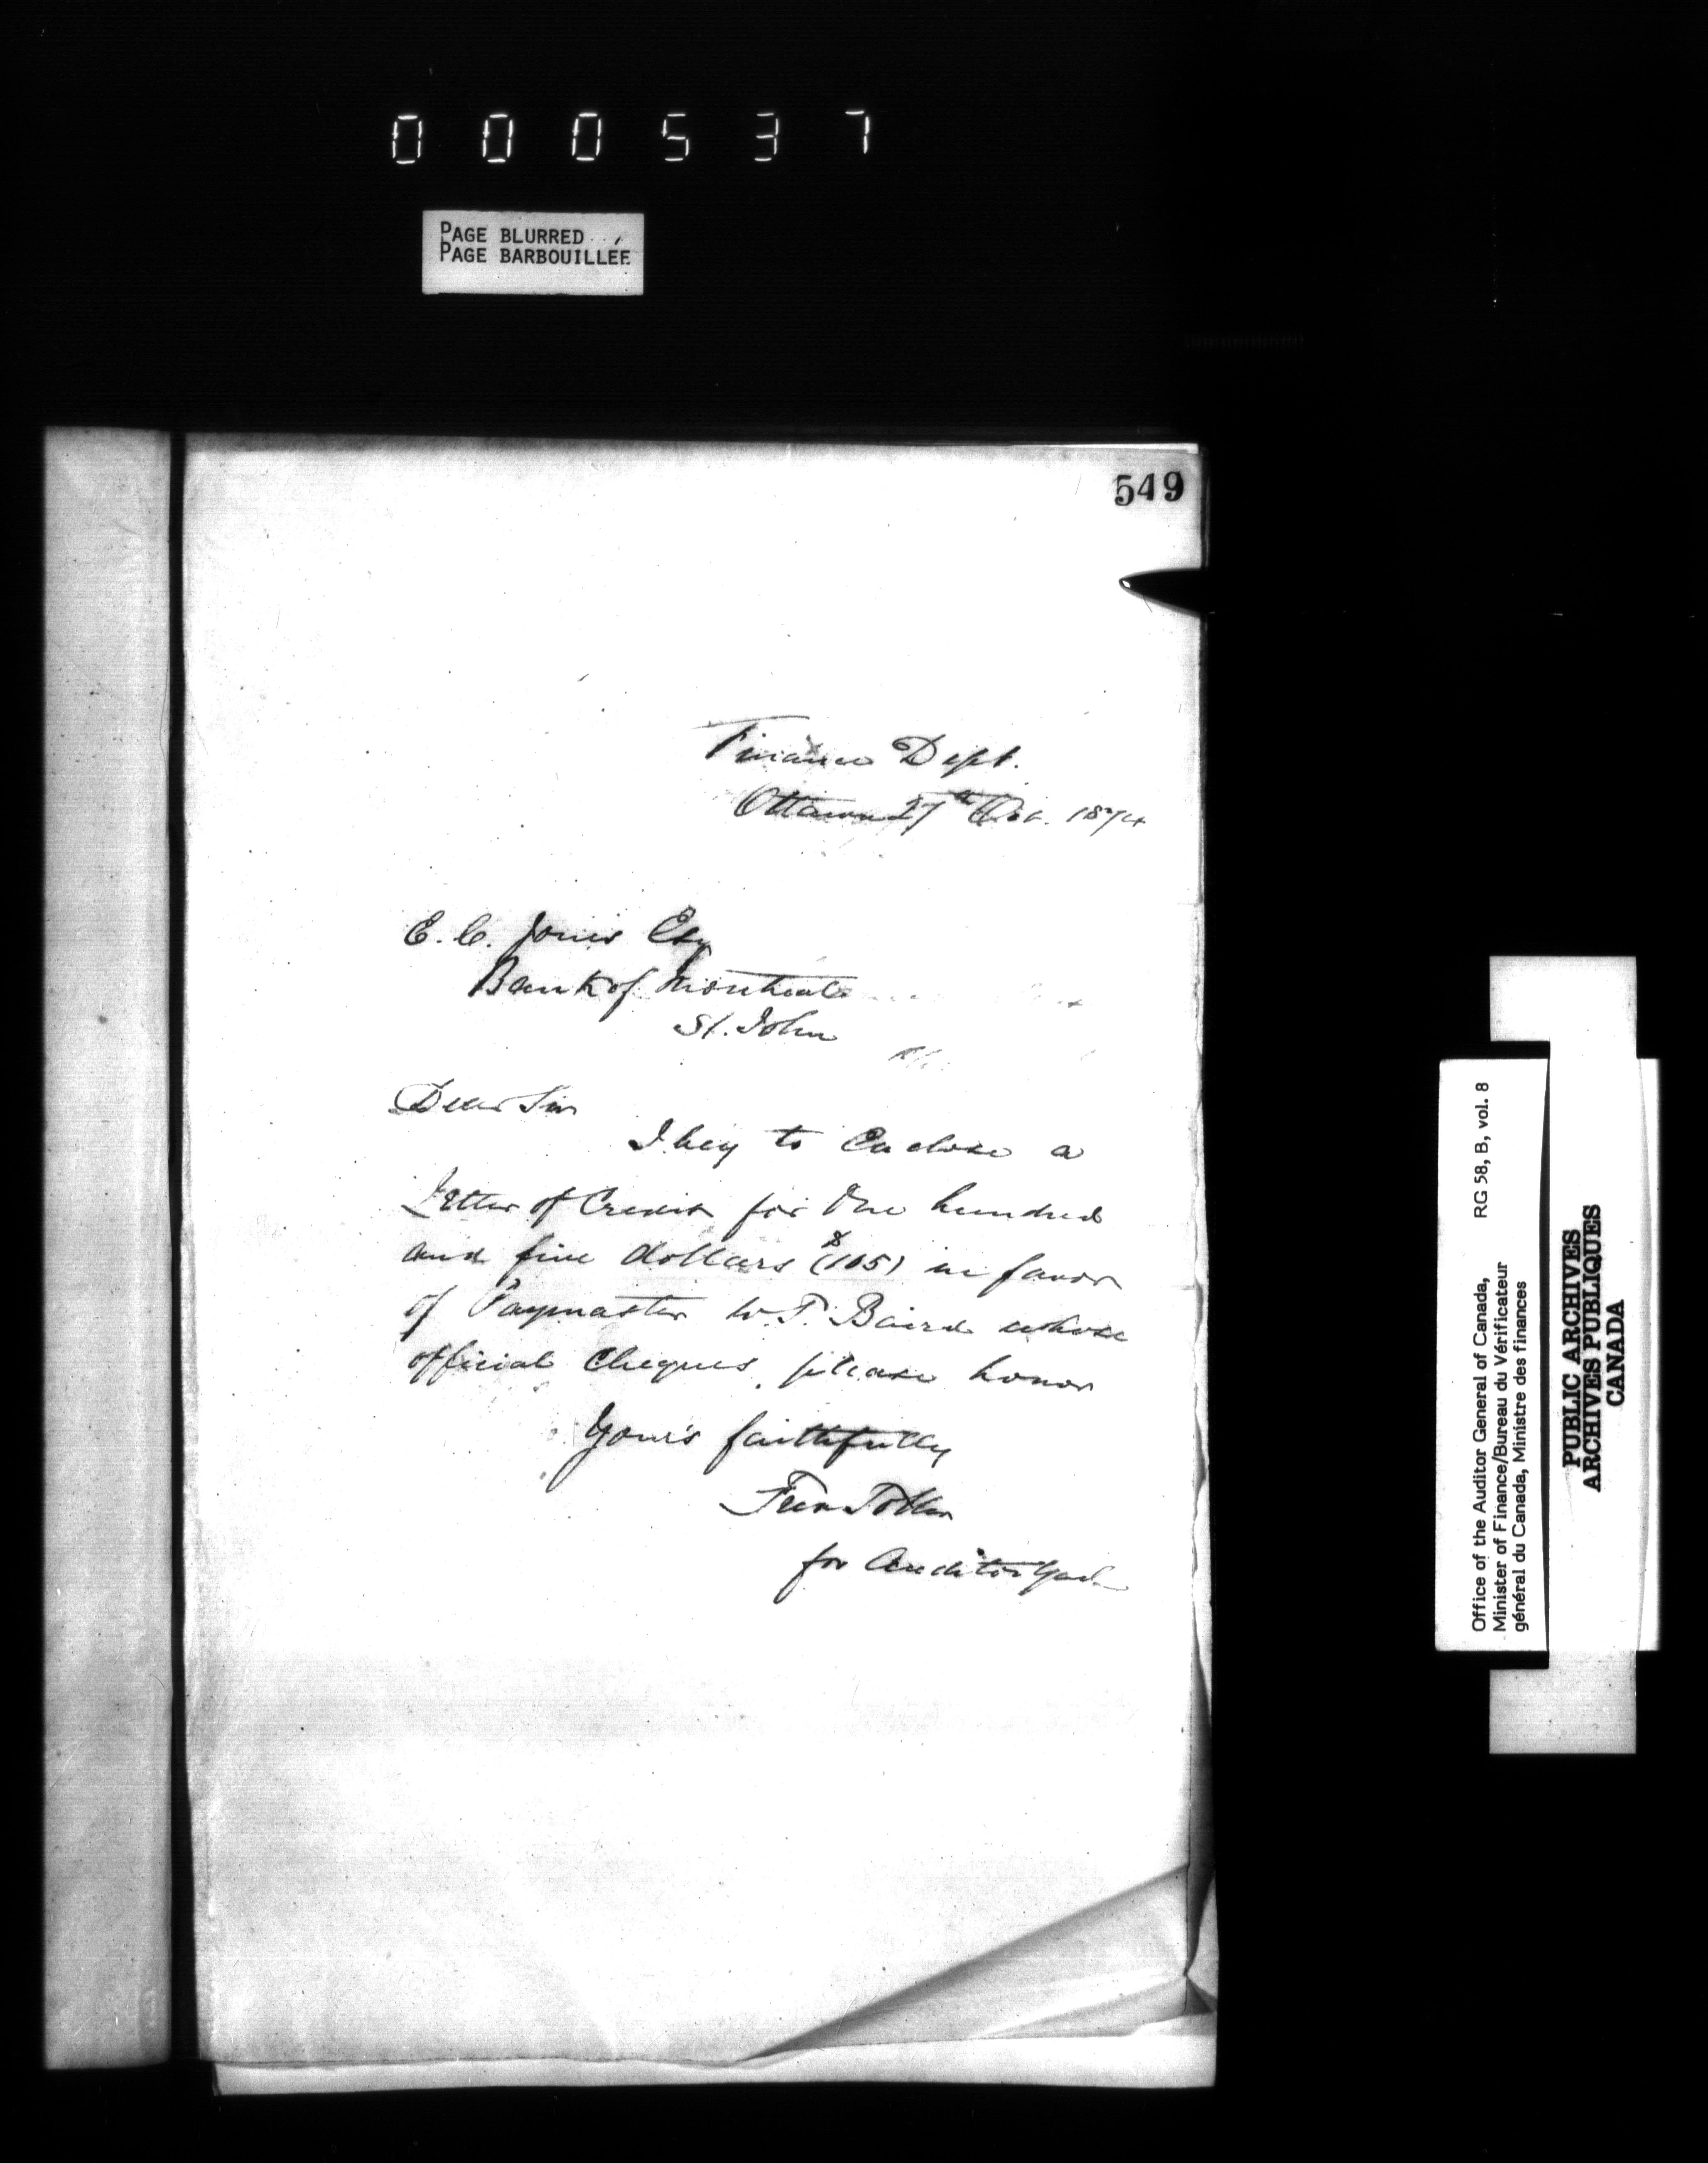 000537
PAGE BLURRED
PAGE BARBOUILLÉE
549
Finance Dept.
Ottawa 27th Oct. 1874
E. C. Jones Esq
Bank of Montreal
St. John
Dear Sir
I beg to Enclose a
Letter of Credit for One hundred
and five dollars ($105) in favor
of Paymaster W. T. Baird whose
official Cheques, please honor
Yours faithfully
for Auditor Genl
Office of the Auditor General of Canada, RG 58, B, vol. 8
Minister of Finance/Bureau du Vérificateur
général du Canada, Ministre des finances
PUBLIC ARCHIVES
ARCHIVES PUBLIQUES
CANADA